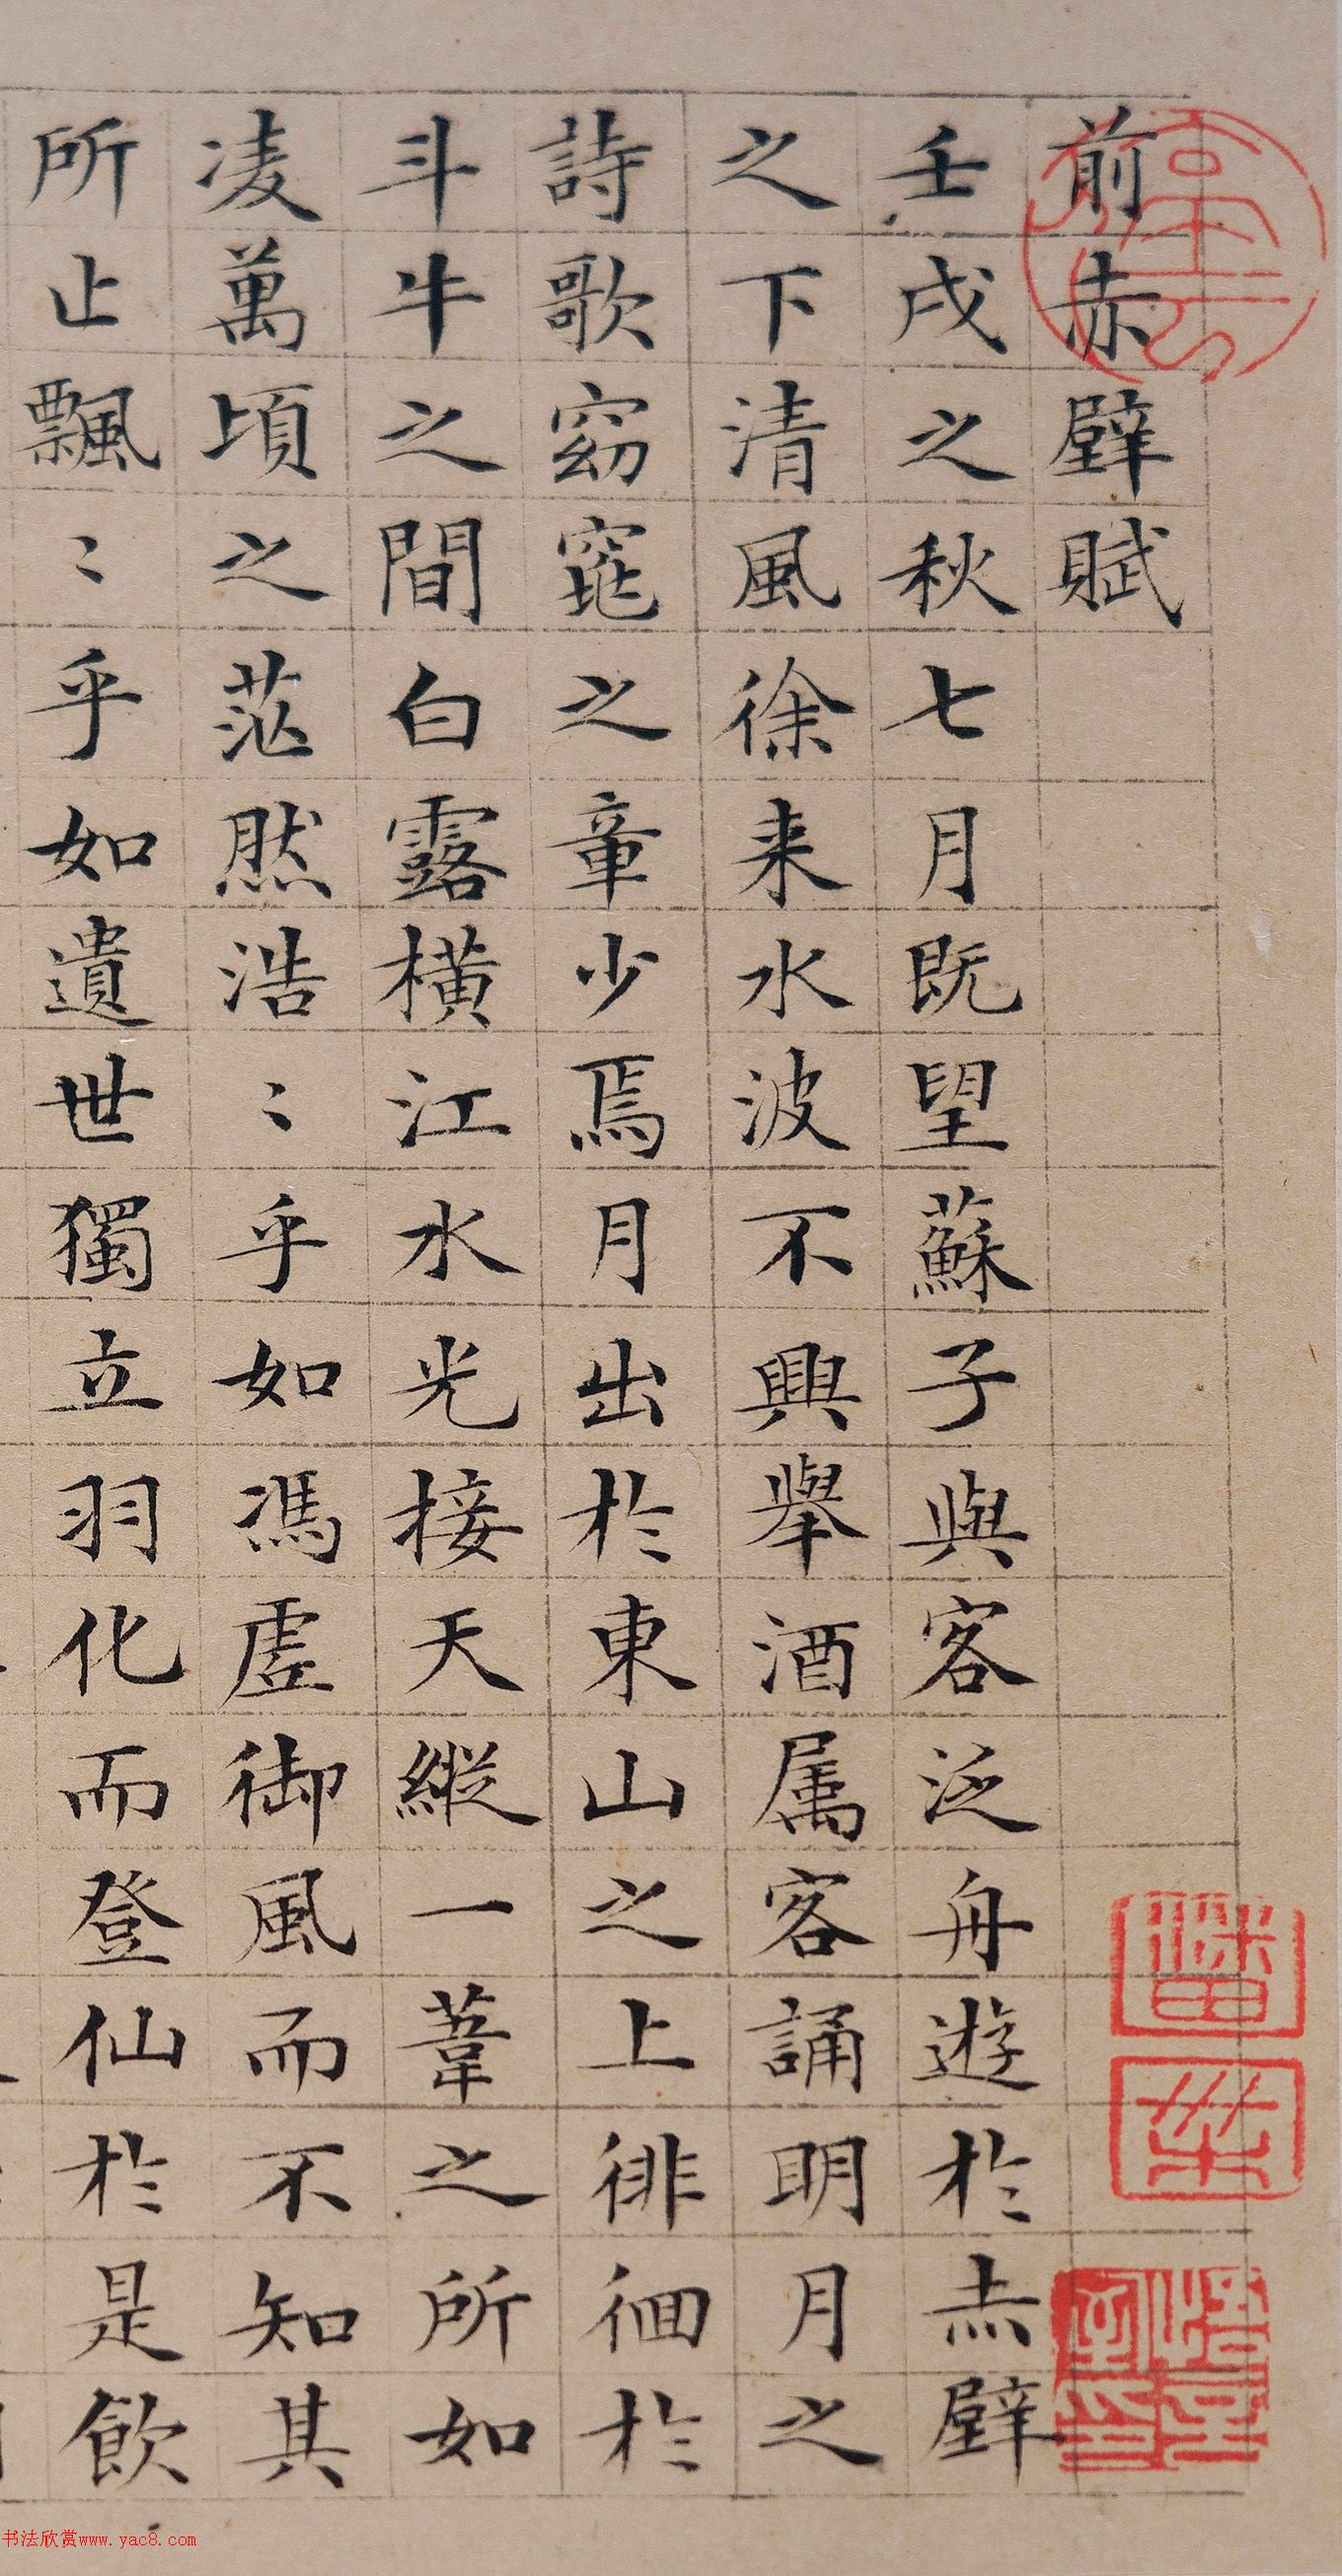 前赤壁賦
壬戌之秋七月既望蘇子與客泛舟遊於赤壁
之下清風徐来水波不興舉酒属客誦明月之
詩歌窈窕之章少焉月出於東山之上徘徊於
斗牛之間白露橫江水光接天縱一葦之所如
凌萬頃之茫然浩〻乎如馮虛御風而不知其
所止飄〻乎如遺世獨立羽化而登仙於是飲
書法欣赏www.yac8.com